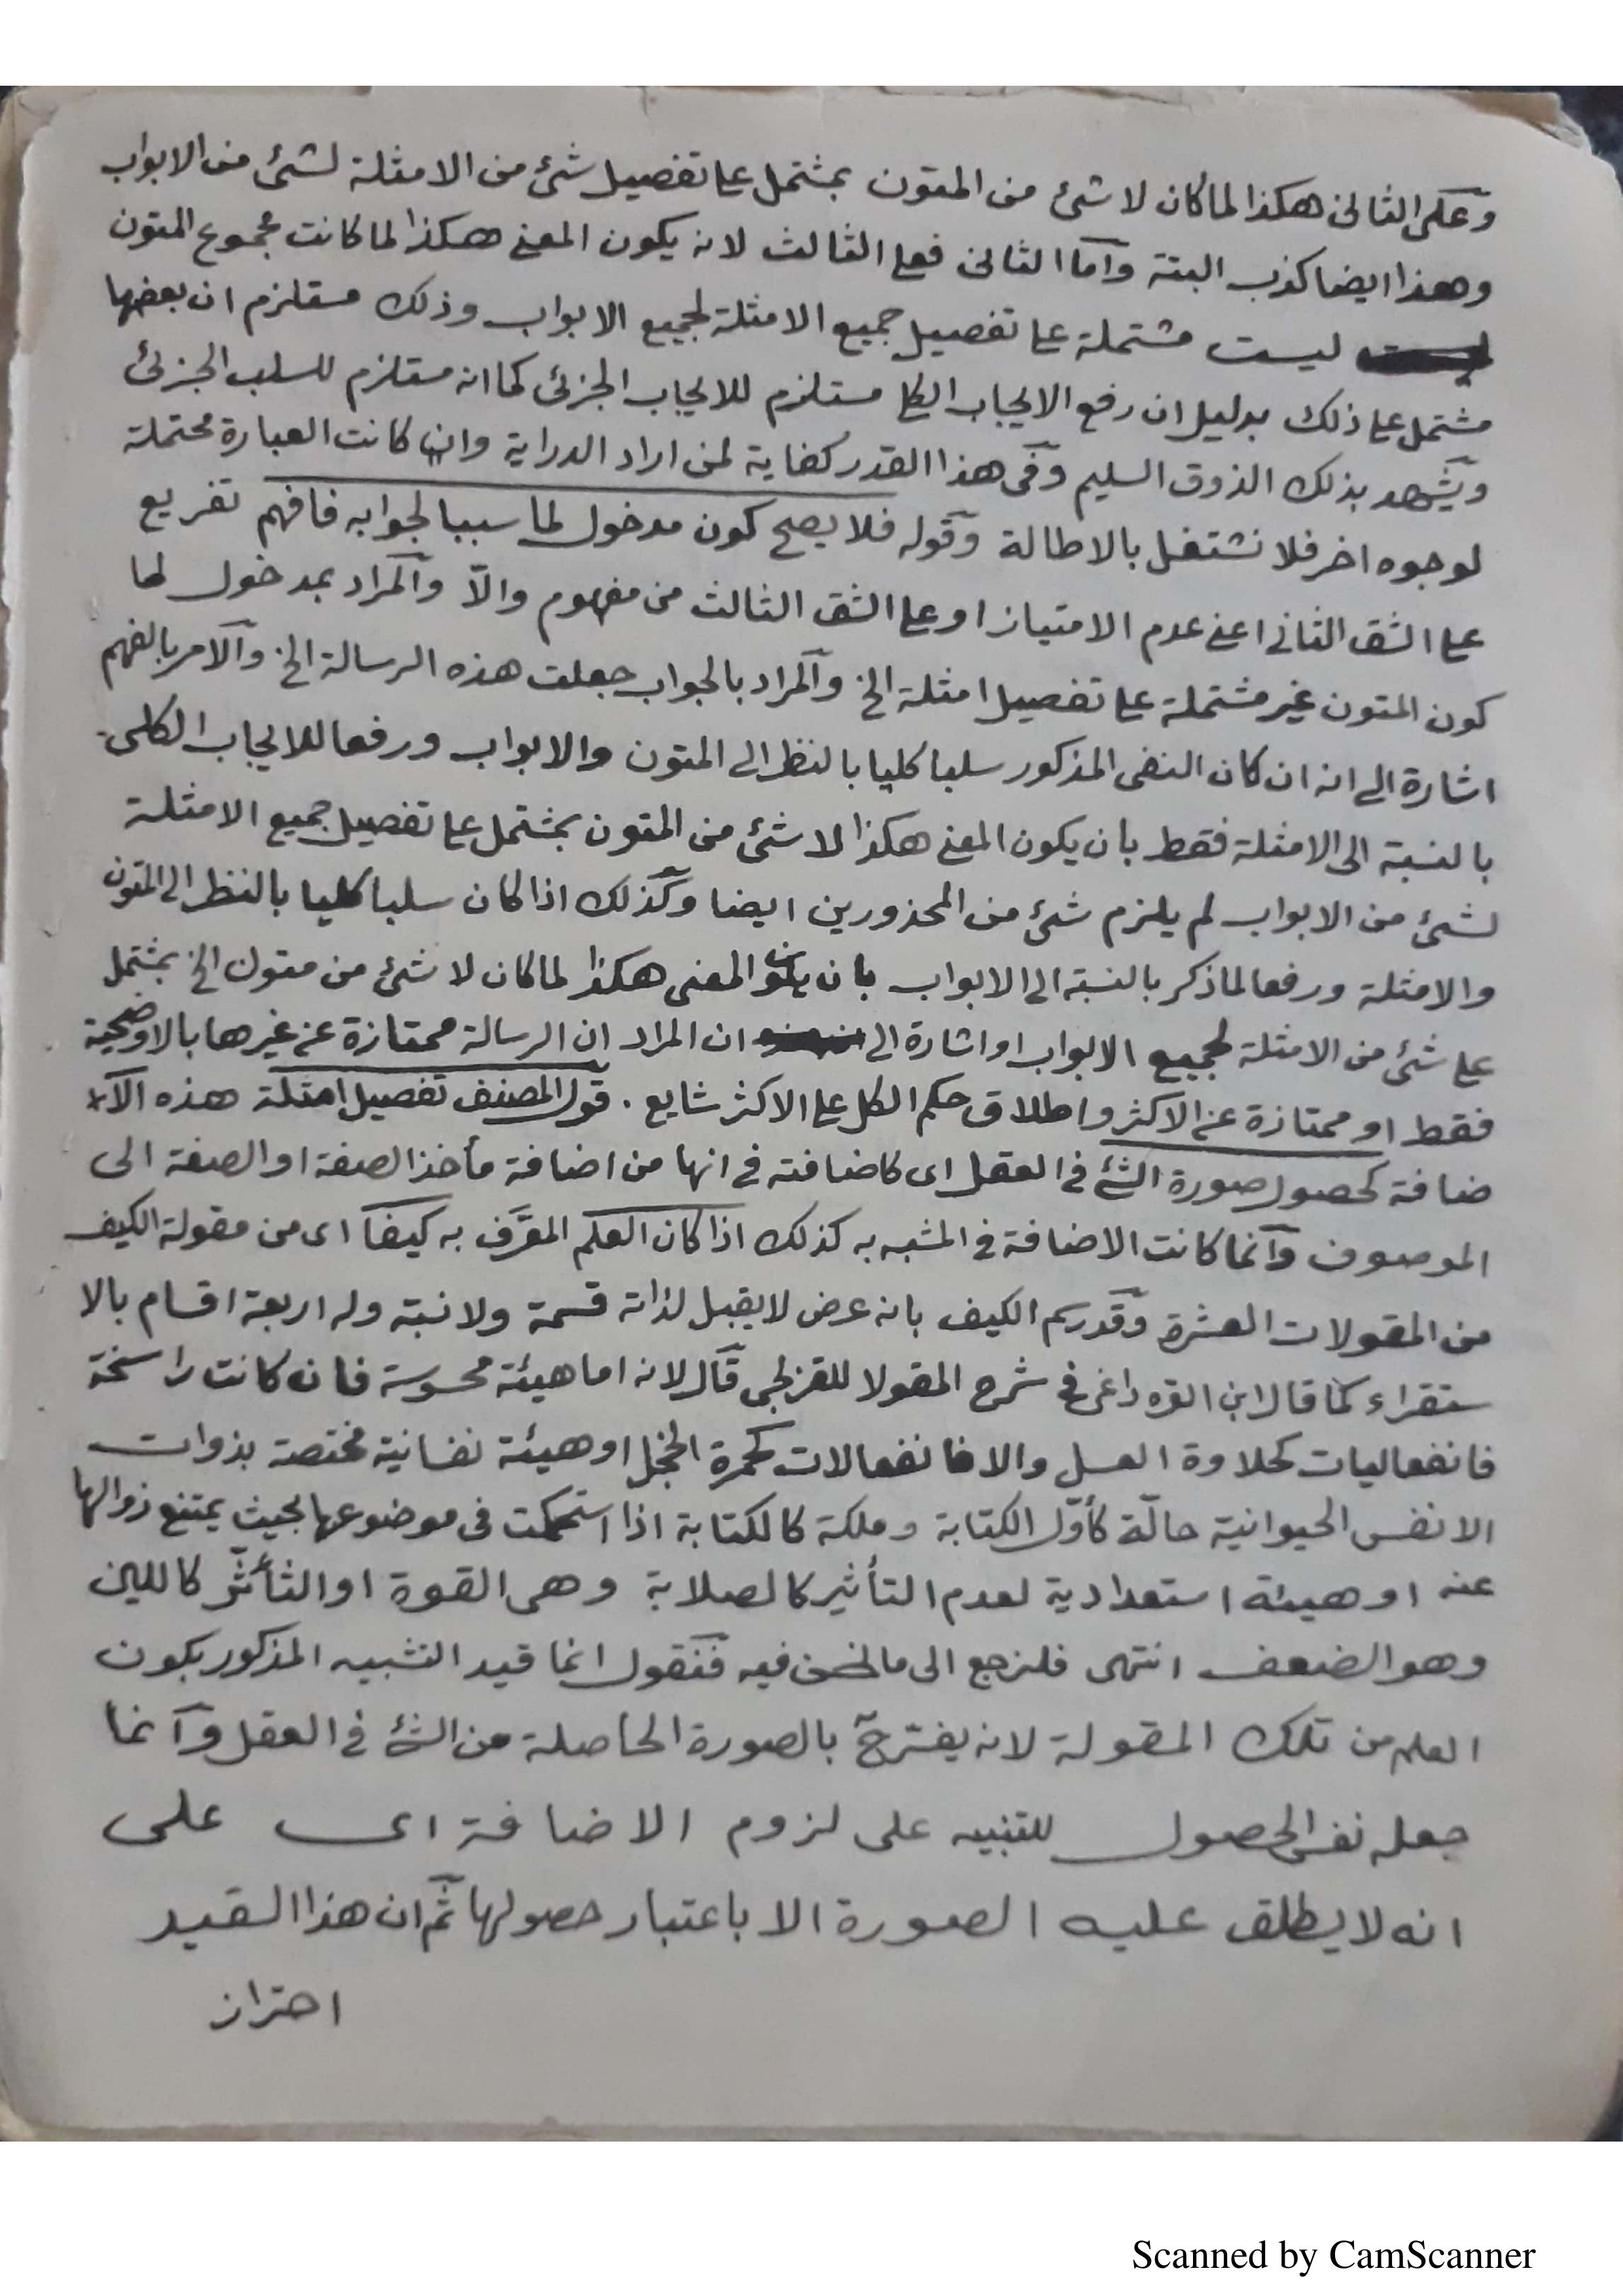 وعلى الثانى هكذا لما كان لا شئ من المتون بمشتمل على تفصيل شئ من الامثلة لشئ من الابواب
وهذا ايضا كذب البتة واما الثانى فعلى الثالث لانه يكون المعنى هكذا لما كانت مجموع المتون
ليست مشتملة على تفصيل جميع الامثلة لجميع الابواب وذلك مستلزم ان بعضها
مشتمل على ذلك بدليل ان رفع الايجاب الكلى مستلزم للايجاب الجزئى كما انه مستلزم للسلب الجزئى
ويشهد بذلك الذوق السليم وفى هذا القدر كفاية لمن اراد الدراية وان كانت العبارة محتملة
لوجوه اخر فلا نشتغل بالاطالة وقوله فلا يصح كون مدخول لما سببا لجوابه فافهم تفريع
على الشق الثانى اعنى عدم الامتياز او على الشق الثالث من مفهوم والّا والمراد بمدخول لما
كون المتون غير مشتملة على تفصيل امثلة الخ والمراد بالجواب جعلت هذه الرسالة الخ والامر بالفهم
اشارة الى انه ان كان النفى المذكور سلبا كليا بالنظر الى المتون والابواب ورفعا للايجاب الكلى
بالنسبة الى الامثلة فقط بأن يكون المعنى هكذا لا شئ من المتون بمشتمل على تفصيل جميع الامثلة
لشئ من الابواب لم يلزم شئ من المحذورين ايضا وكذلك اذا كان سلبا كليا بالنظر الى المتون
والامثلة ورفعا لما ذكر بالنسبة الى الابواب بان يكون المعنى هكذا لما كان لا شئ من متون الخ بمشتمل
على شئ من الامثلة لجميع الابواب او اشارة الى ان المراد ان الرسالة ممتازة عن غيرها بالاوضحية
فقط او ممتازة عن الاكثر واطلاق حكم الكل على الاكثر شايع . قول المصنف تفصيل امثلة هذه الا
ضافة كحصول صورة الشئ فى العقل اى كاضافته فى انها من اضافة مأخذ الصفة او الصفة الى
الموصوف وانما كانت الاضافة فى المشبه به كذلك اذا كان العلم المعرَّف به كيفا اى من مقولة الكيف
من المقولات العشرة وقد رسم الكيف بانه عرض لا يقبل لذاته قسمة ولا نسبة وله اربعة اقسام بالا
ستقراء كما قال ابن القره داغى فى شرح المقولا للقزلجى قال لانه اما هيئة محسوسة فان كانت راسخة
فانفعاليات كحلاوة العسل والا فانفعالات كحمرة الخجل او هيئة نفسانية مختصة بذوات
الانفس الحيوانية حالّة كأوّل الكتابة وملكة كالكتابة اذا استحكمت فى موضوعها بحيث يمتنع زوالها
عنه او هيئة استعدادية لعدم التأثير كالصلابة وهى القوة او التأثّر كاللين
وهو الضعف انتهى فلنرجع الى ما نحن فيه فنقول انما قيد التشبيه المذكور بكون
العلم من تلك المقولة لانه يفسّر ح بالصورة الحاصلة من الشئ فى العقل وانما
جعله نفس الحصول للتنبيه على لزوم الاضافة اى على
انه لا يطلق عليه الصورة الا باعتبار حصولها ثم ان هذا القيد
احتراز
Scanned by CamScanner